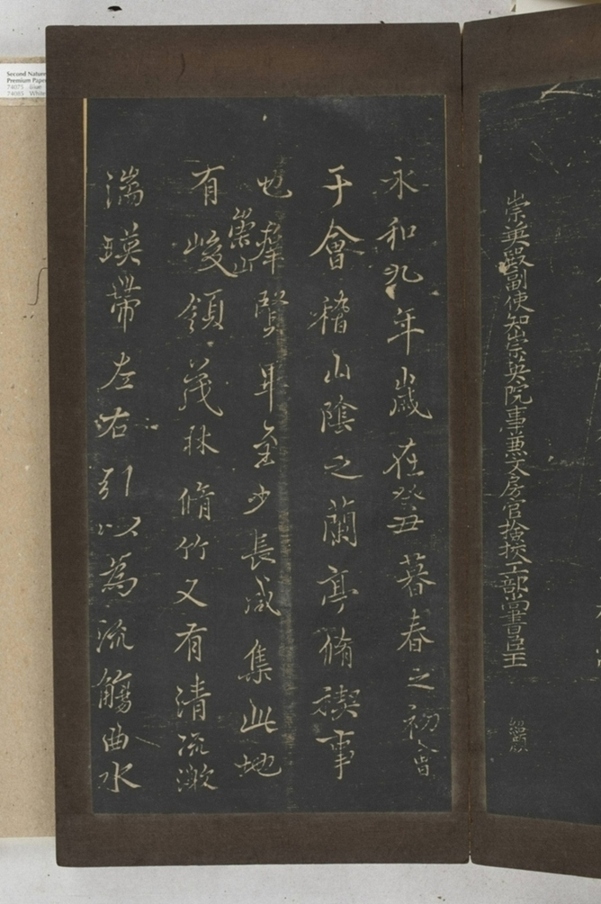 崇英殿副使知崇英院事兼文房官檢校工部尚書臣王
永和九年歲在癸丑暮春之初會
于會稽山陰之蘭亭脩禊事
也羣賢畢至少長咸集此地
有崇山峻領茂林脩竹又有清流激
湍暎帶左右引以為流觴曲水
Second Nature
Premium Paper
74071 Blue
74085 White